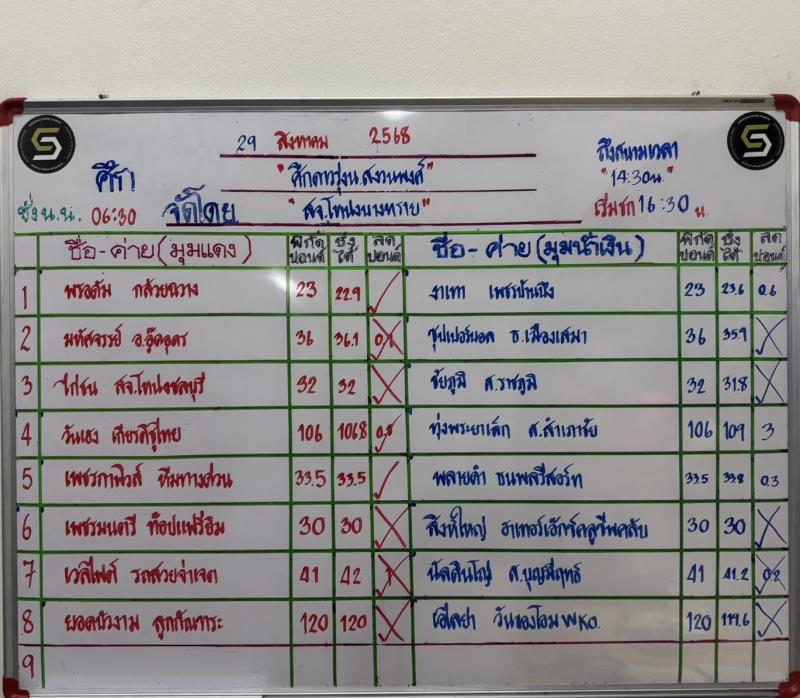 29 สิงหาคม 2568
ศึก "ศึกดาวรุ่งน.สงวนพงศ์" ถึงสนามเวลา "14:30น."
ชั่งน.น. 06:30 จัดโดย "สจ.โทน่งบางทราย" เริ่มชก 16:30 น.
ชื่อ-ค่าย(มุมแดง) พิกัดปอนด์ ชั่งได้ ลดปอนด์ ชื่อ-ค่าย(มุมน้ำเงิน) พิกัดปอนด์ ชั่งได้ ลดปอนด์
1 กล้วยฉวาง 23 22.9 งาเทา เพชรบ้านถึง 23 23.6 0.6
2 มหัศจรรย์ อ.อู๊ดอุดร 36 36.1 0.1 ซุปเปอร์บอล ช.เมืองเสมา 36 35.9
3 ไก่ชน สจ.โทน่งชลบุรี 32 32 ชัยภูมิ ส.ราชภูมิ 32 31.8
4 วันเฮง เกียรติชูไทย 106 106.8 ทุ่งพระยาเล็ก ส.สำเภาชัย 106 109 3
5 ทีมทางด่วน 33.5 33.5 พลายดำ ธนพลรีสอร์ท 33.5 33.8 0.3
6 เพชรมนตรี ท๊อปแฟรี่ยิม 30 30 สิงห์ใหญ่ 30 30
7 เวลิไฟต์ รถสวยจ่าเจต 41 42 1 ส.บุญมีฤทธิ์ 41 41.2 0.2
8 ยอดบัวงาม ลูกกัณฑาระ 120 120 เอไลย่า วันของโอม WKO. 120 119.6
9